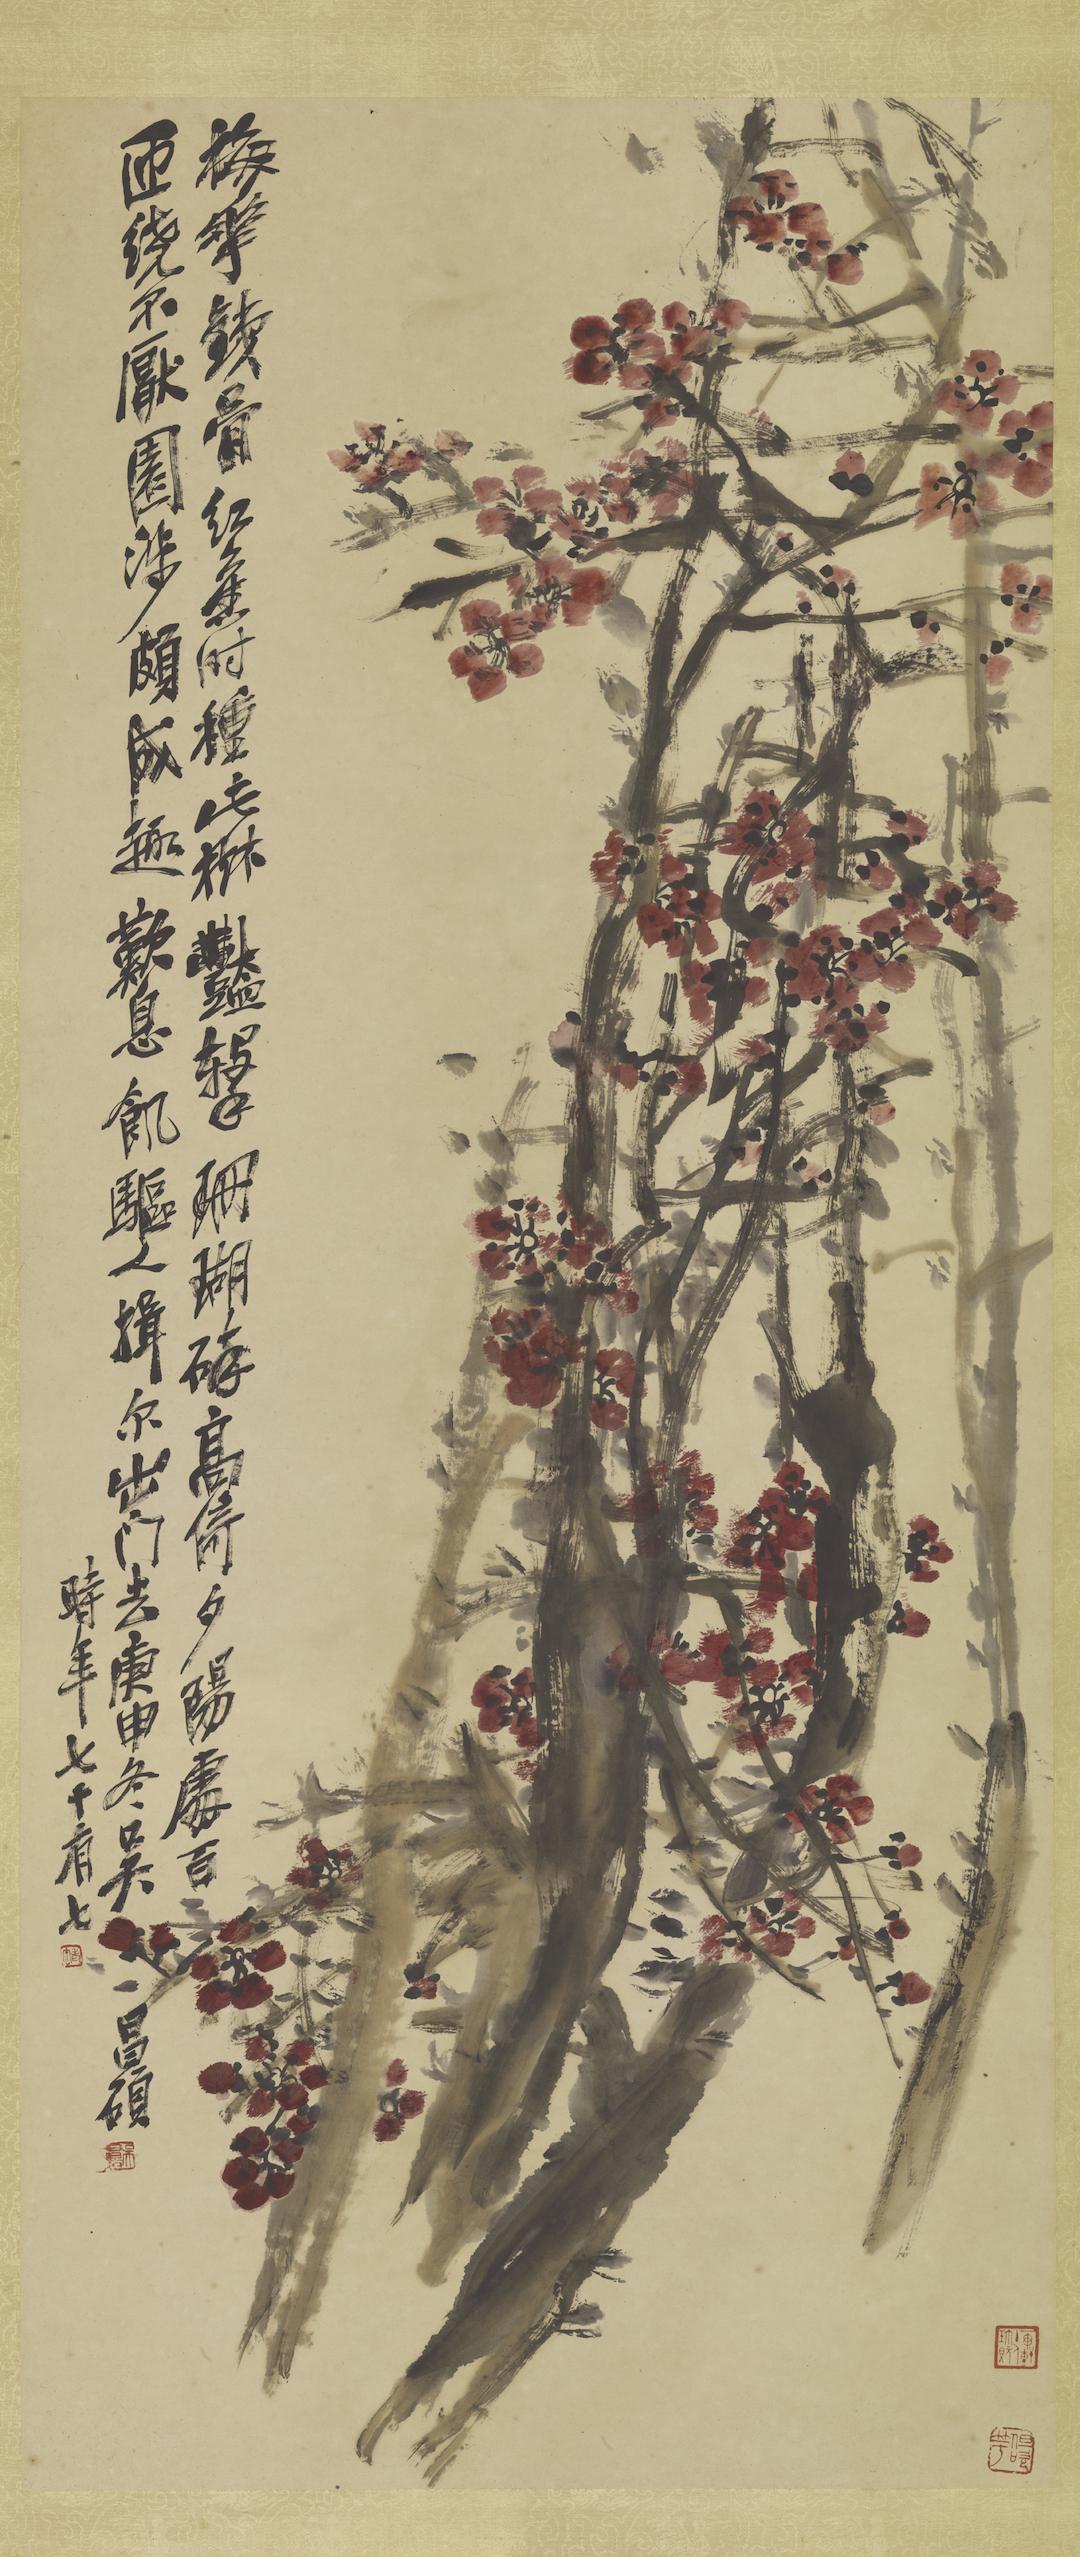 梅華鐵骨紅舊時種此樹豔擊珊瑚碎高倚夕陽處百
匝繞不厭園涉頗成趣歎息飢驅人揖尔出門去庚申冬吳昌碩
時年七十有七